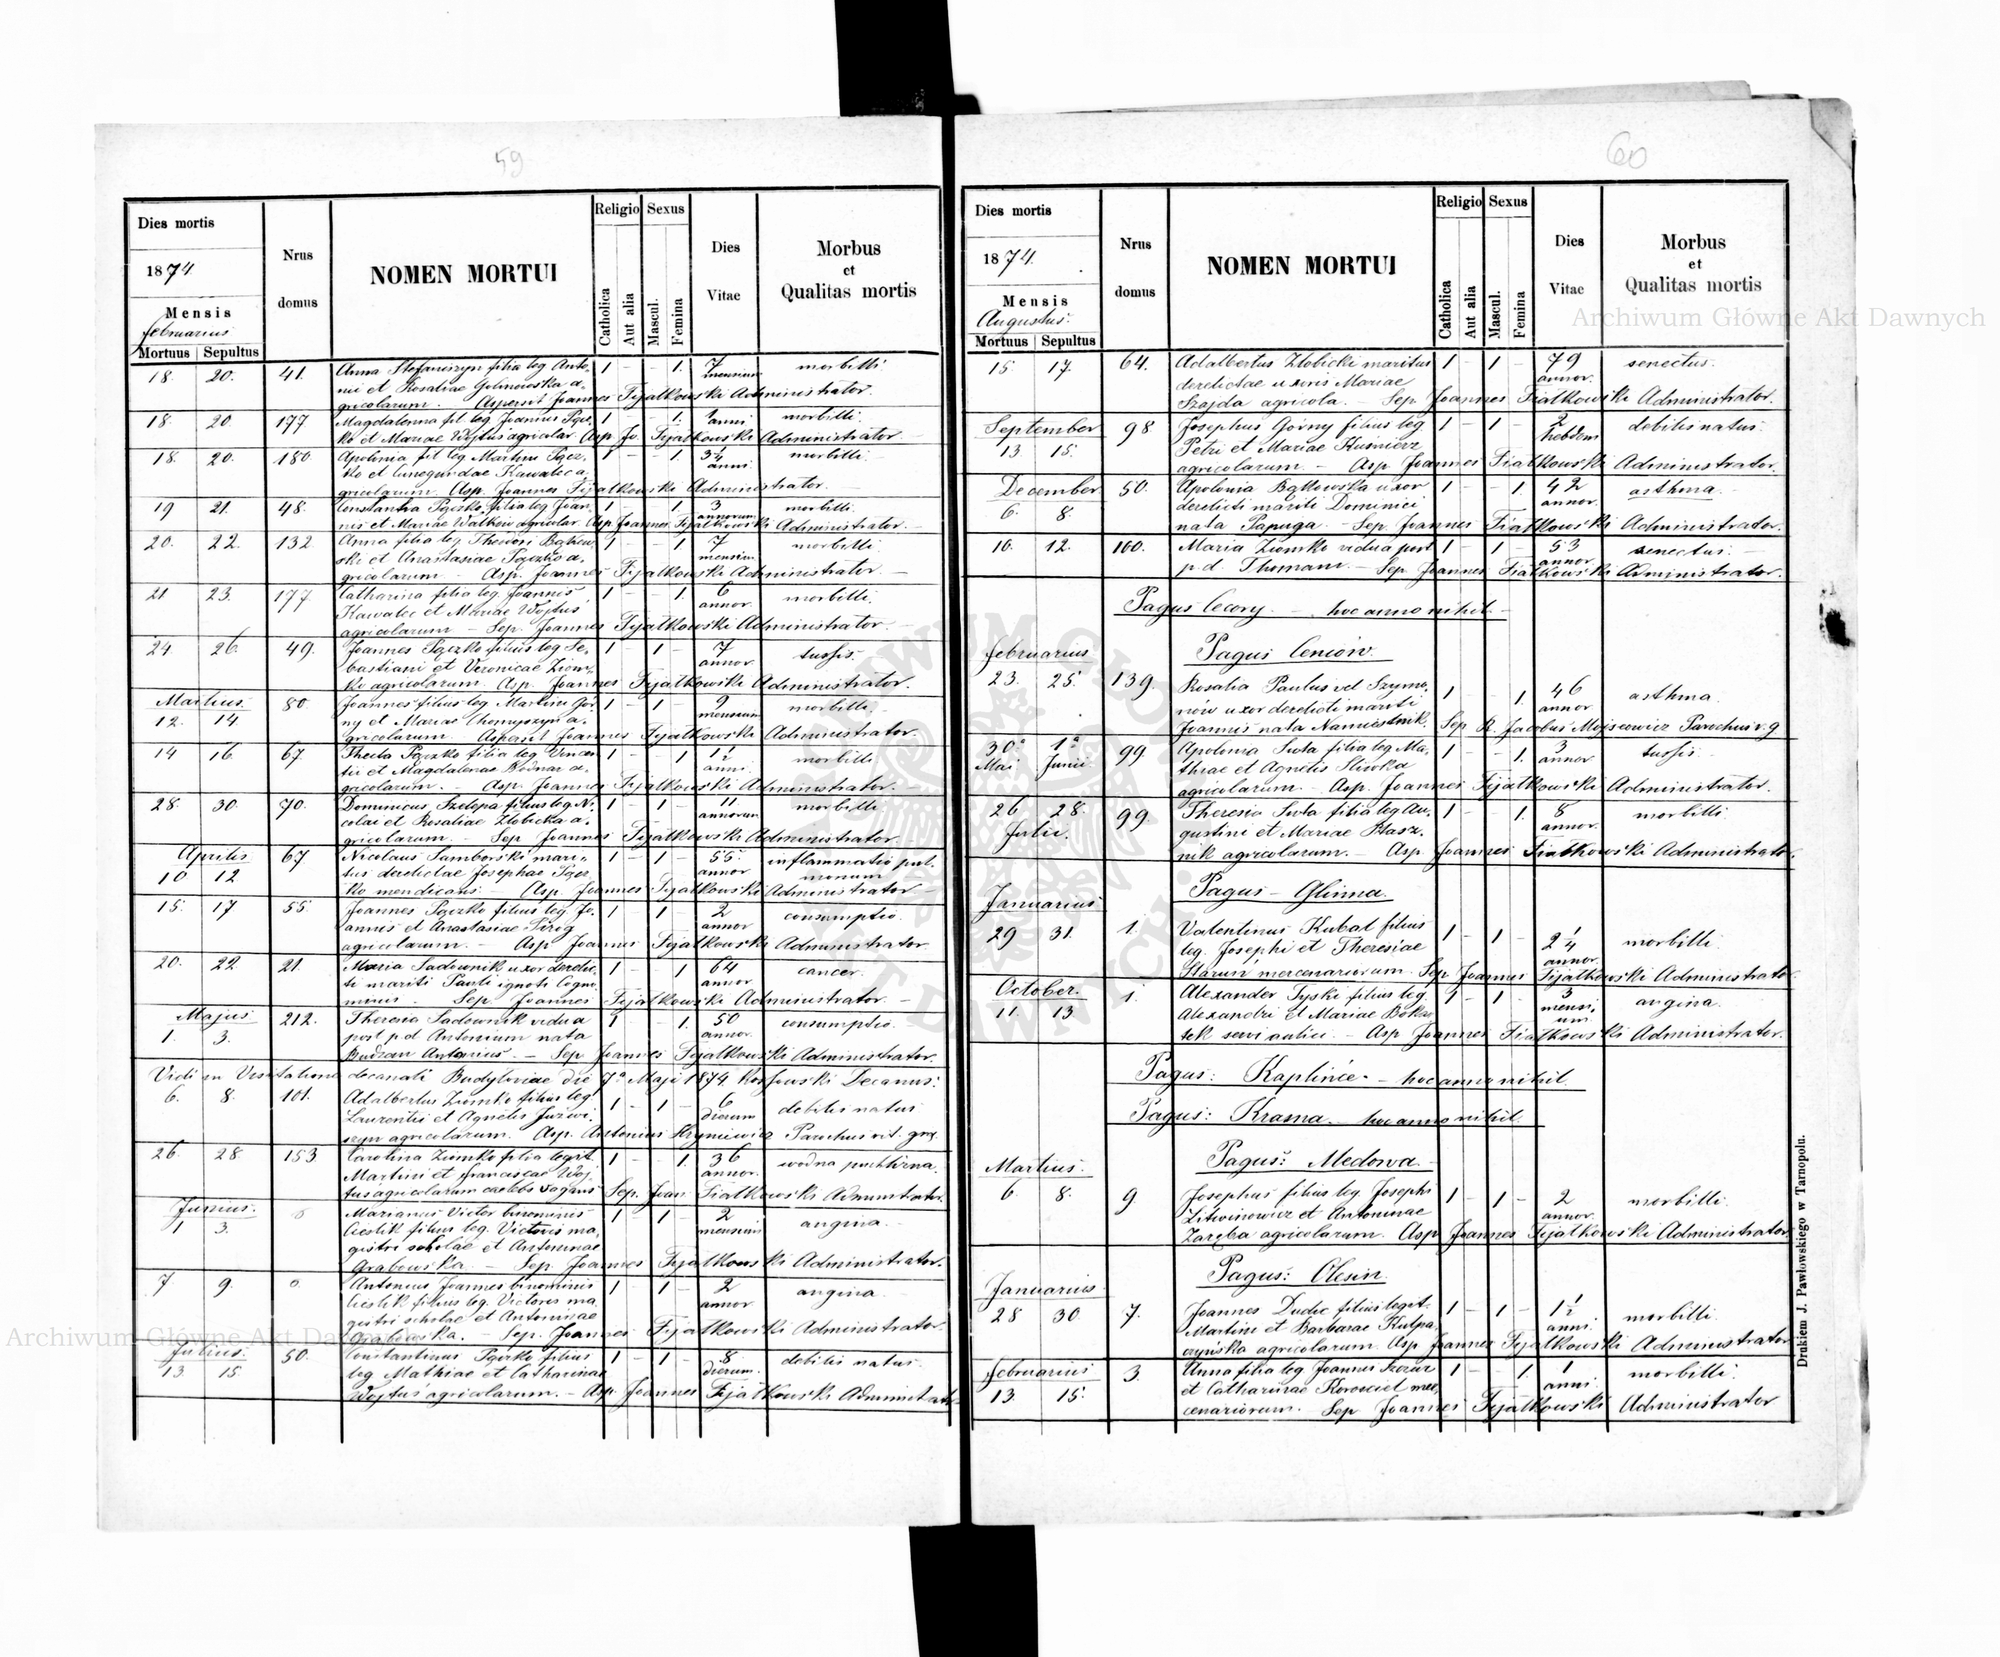 59
Dies mortis
1874
Mensis
februarius
Mortuus Sepultus
Nrus domus
NOMEN MORTUI
Religio
Catholica
Aut alia
Sexus
Mascul.
Femina
Dies Vitae
Morbus et Qualitas mortis
18. 20. 41. Anna Stefaniszyn filia leg Anto- 1 – – 1. 7 mensium morbilli
nii et Rosaliae a-
gricolarum. Aspersit Joannes Fijatkowski Administrator.
18. 20. 177 Magdalenna fil leg Joannis Pącz- 1 – – 1. 1 anni morbilli.
ko et Mariae Wojtus agricolar Asp Jo. Fijatkowski Administrator –
18. 20. 180. Apolonia fil leg Martini Pącz- 1 – – 1. anni morbilli.
ko et Cunegundae Kawalec a-
gricolarum. Asp. Joannes Fijatkowski Administrator. –
19 21. 48. Constantia Pączko, filia leg Joan- 1 – – 1 3 annorum morbilli.
nis et Mariae Walkow agricolar Asp Joannes Fijatkowski Administrator. –
20. 22. 132. Anna filia leg Theodori Bąkow- 1 – – 1 7 mensium morbilli.
ski et Anastasiae Pączko a-
gricolarum – Asp. Joannes Fijatkowski Administrator –
21 23. 177 Catharina filia leg. Joannis 1 – – 1. 6 annor. morbilli.
Kawalec et Mariae Wojtus
agricolarum – Sep. Joannes Fijatkowski Administrator. –
24 26. 49. Joannes Pączko filius leg Se- 1 – 1 – 7 annor tussis.
bastiani et Veronicae Ziom-
ko agricolarum. Asp. Joannes Fijatkowski Administrator.
Martius.
12. 14 80. Joannes filius leg Martini Gór- 1 – 1 – 9 mensium morbilli.
ny et Mariae a-
gricolarum – Aspersit Joannes Fijatkowski Administrator.
14 16. 67. Thecla Pączko filia leg Vincen- 1 – – 1 1½ anni. morbilli
tii et Magdalenae Bodnar a-
gricolarum. – Asp. Joannes Fijatkowski Administrator. –
28. 30. 70. Dominicus Szeliga filius leg Ni- 1 – 1 – 11 annorum morbilli
colai et Rosaliae Złobicka a-
gricolarum. – Sep Joannes Fijatkowski Administrator
Aprilis
10 12 67 Nicolaus Samborski mari- 1 – 1 – 55. annor inflammatio pul-
tus derelictae Josephae Pącz- monum
ko mendicans – Asp. Joannes Fijatkowski Administrator –
15. 17 55. Joannes Pączko filius leg Jo- 1 – 1 – 2 annor consumptio.
annis et Anastasiae Pirog
agricolarum. – Asp Joannes Fijatkowski Administrator
20. 22. 21. Maria Sadownik uxor derelic- 1 – – 1 64 annor cancer.
ti mariti Pauli ignoti cogno-
minis. Sep. Joannes Fijatkowski Administrator. –
Majus
1. 3. 212. Theresia Sadownik vidua 1 – – 1. 50 annor. consumptio.
post pd Antonium nata
Budzan Antonius. – Sep Joannes Fijatkowski Administrator.
Vidi in Visitatione decanali Budyloviae die 7ª Maji 1874. Decanus.
6. 8. 101. Adalbertus Ziomko filius leg 1 – 1 – 6 dierum debilis natus
Laurentii et Agnetis
agricolarum. Asp. Antonius Kryniewicz Parochus rit. grg.
26. 28. 153. Carolina Ziomko filia legit. 1 – – 1. 36 annor. wodna puchlina.
Martini et franciscae Woj-
tus agricolarum caelebs vagans Sep. Joan Fiatkowski Administrator.
Junius.
1 3. 0 Marianus Victor binominis 1 – 1 – 2 mensium angina –
Cieslik filius leg. Victoris ma-
gistri scholae et Antoninae
Grabowska. – Sep. Joannes Fijatkowski Administrator.
7 9. 0. Antonius Joannes binominis 1 – 1 – 2 annor angina –
Cieslik filius leg. Victoris ma-
gistri scholae et Antoninae
Grabowska. – Sep. Joannes Fijatkowski Administrator
Julius.
13. 15. 50. Constantinus Pączko filius 1 – 1 – 8 dierum. debilis natus
leg Mathiae et Catharinae
Wojtus agricolarum. – Asp Joannes Fijatkowski Administrator
60
Dies mortis
1874.
Mensis
Augustus.
Mortuus Sepultus
Nrus domus
NOMEN MORTUI
Religio
Catholica
Aut alia
Sexus
Mascul.
Femina
Dies Vitae
Morbus et Qualitas mortis
15. 17. 64. Adalbertus Złobicki maritus 1 – 1 – 79 annor. senectus.
derelictae uxoris Mariae
Szajda agricola. – Sep Joannes Fiatkowski Administrator.
September
13 15. 98 Josephus Górny filius leg 1 – 1 – 2 hebdom debilis natus
Petri et Mariae Kusnierz
agricolarum – Asp Joannes Fiatkowski Administrator.
December
6. 8. 50. Apolonia Bąkowska uxor 1 – – 1. 42 annor. asthma. –
derelicti mariti Dominici
nata Papuga. – Sep. Joannes Fiatkowski Administrator.
10. 12. 100. Maria Ziomko vidua post 1 – 1 – 53 annor. senectus. –
p.d. Thomam. – Sep. Joannes Fiatkowski Administrator.
Pagus Cecory – hoc anno nihil –
Pagus Ceniów.
februarius
23. 25. 139. Rosalia Paulus vel Szymo- 1 – – 1. 46 annor asthma.
nów uxor derelicti mariti
Joannis nata Namiestnik. Sep R. Jacobus Mojseowicz Parochus r. g
30ª Mai 1ª Junii 99. Apolonia Suta filia leg Ma- 1 – – 1. 3 annor tussis –
thiae et Agnetis Sliwka
agricolarum – Asp. Joannes Fijatkowski Administrator.
26 28. Julii. 99. Theresia Suta filia leg Au- 1 – – 1. 8 annor. morbilli.
gustini et Mariae Błasz-
nik agricolarum. – Asp. Joannes Fiatkowski Administrator.
Pagus – Glinna.
Januarius
29 31. 1. Valentinus Kubal filius 1 – 1 – 2¼ annor. morbilli.
leg. Josephi et Theresiae
mercenariorum. Sep Joannes Fijatkowski Administrator
October.
11. 13 1. Alexander Tyski filius leg. 1 – 1 – 3 mensi- um. angina.
Alexandri et Mariae
servi aulici. – Asp Joannes Fiatkowski Administrator.
Pagus: Kaplińce – hoc anno nihil.
Pagus: Krasna – hoc anno nihil.
Pagus: Medowa. –
Martius.
6. 8. 9. Josephus filius leg. Josephi 1 – 1 – 2 annor. morbilli.
Litwinowicz et Antoninae
Zaręba agricolarum. Asp Joannes Fijatkowski Administrator.
Pagus: Olesin.
Januarius
28 30. 7. Joannes Dudic filius legit. 1 – 1 – 1½ anni. morbilli.
Martini et Barbarae Kulpa-
czyńska agricolarum. Asp Joannes Fijatkowski Administrator
februarius
13. 15. 3. Anna filia leg Joannis 1 – – 1. 1 anni. morbilli.
et Catharinae Korosciel mer-
cenariorum. – Sep Joannes Fijatkowski Administrator
Drukiem J. Pawłowskiego w Tarnopolu.
Archiwum Główne Akt Dawnych
Archiwum Główne Akt Dawnych
ARCHIWUM GŁÓWNE AKT DAWNYCH